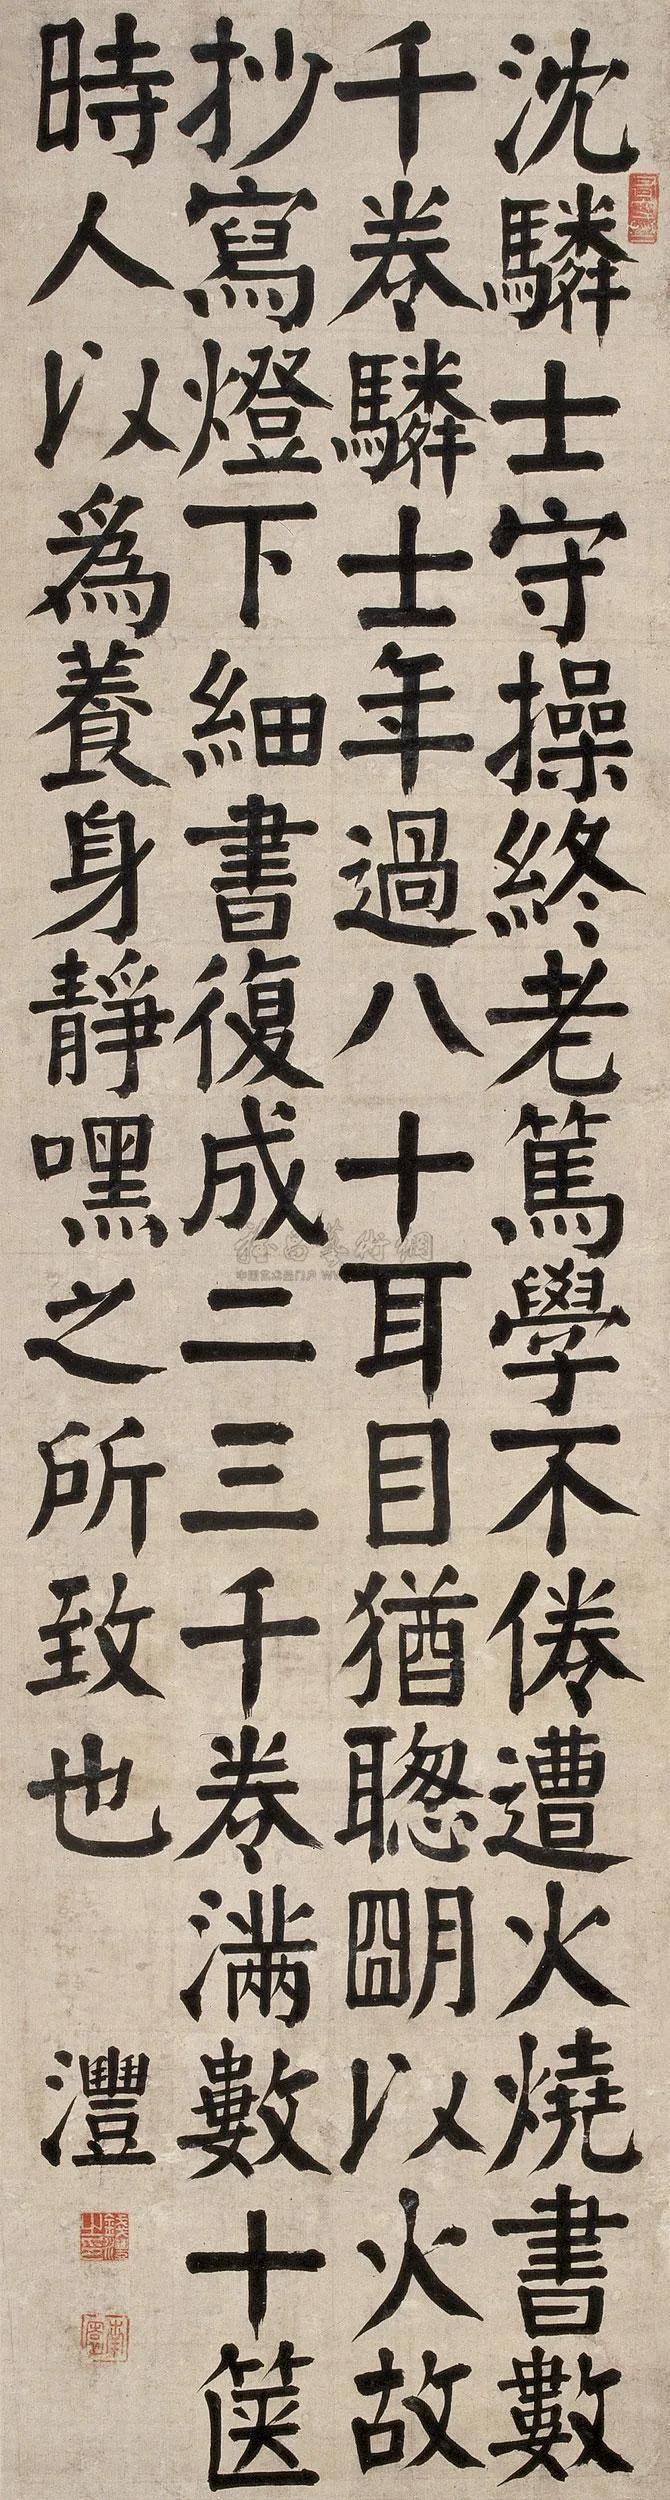 沈驎士守操終老篤學不倦遭火燒書數
千卷驎士年過八十耳目猶聦朙以火故
抄寫燈下細書復成二三千卷滿數十篋
時人以爲養身靜嘿之所致也
灃
錢灃之印